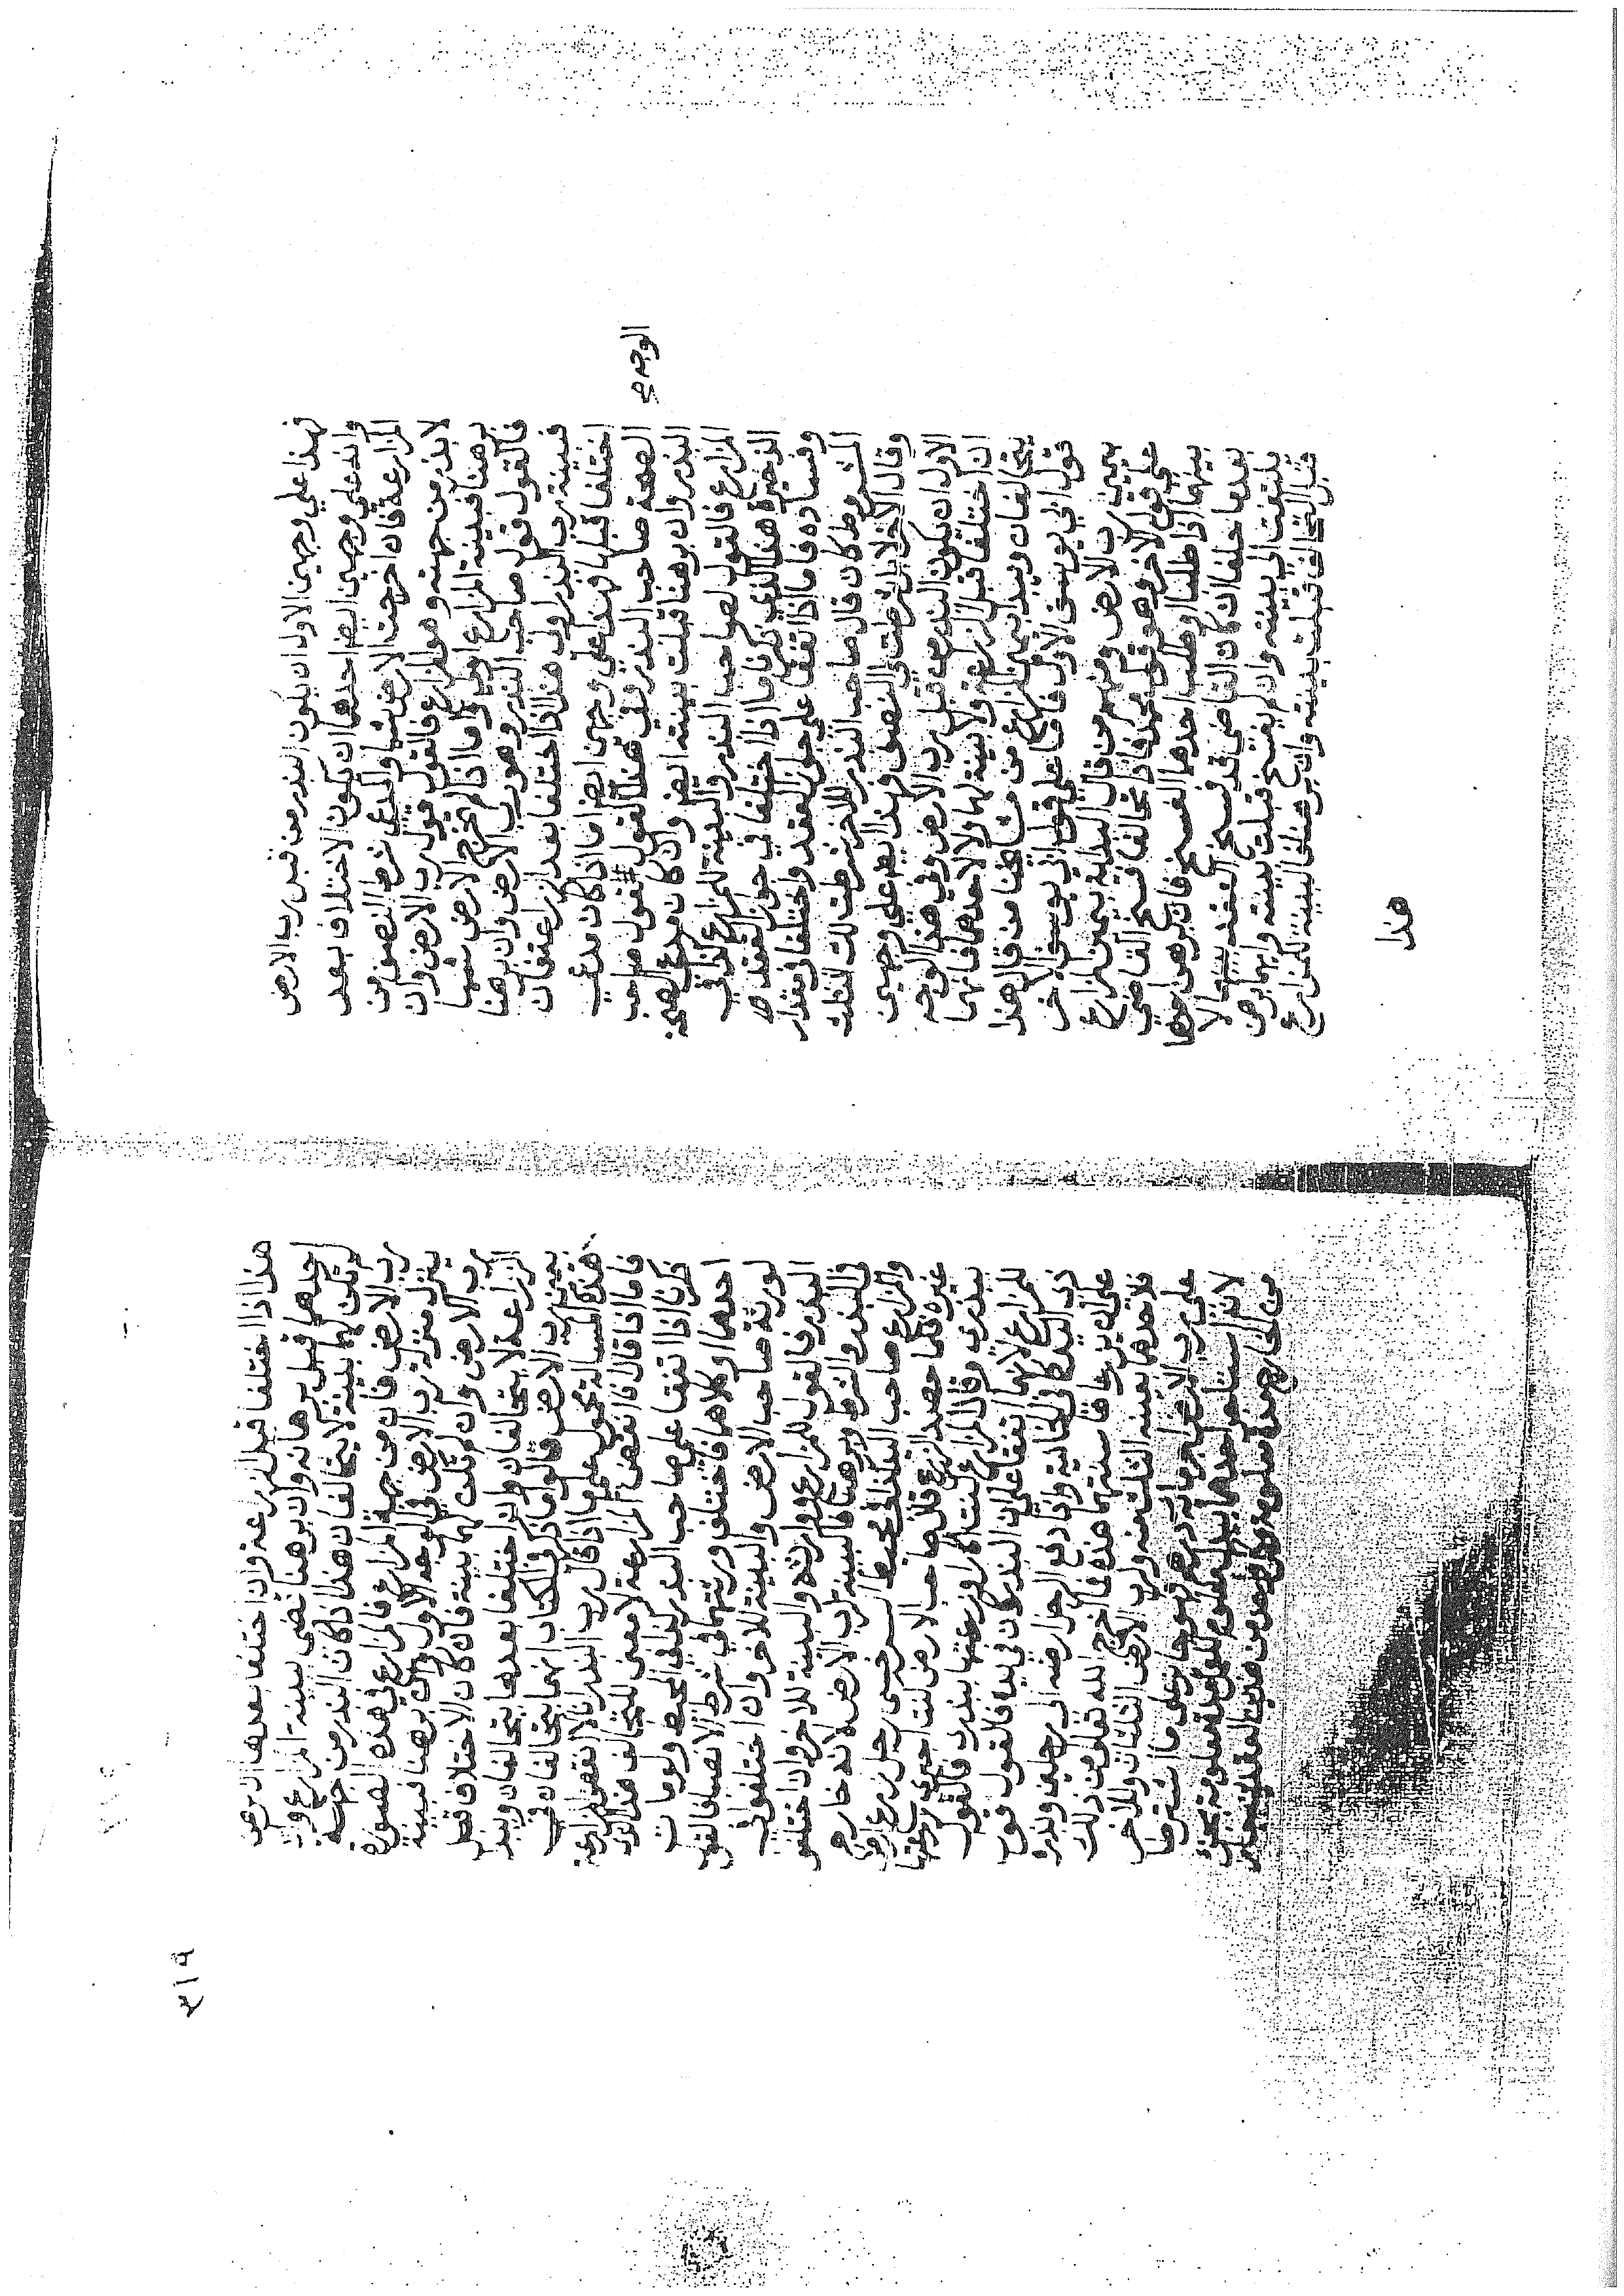 فهذا علي وجهين الاول ان يكون البذر من قبل رب الارض
وانه علي وجهين ايضا احدهما ان يكون الاختلاف بعد
المزارعة فان اخرجت الارض شيا والمدعي شرط النصف من
لا بذر من جهته وهو المزارع فالقول قول رب الارض وان
برهنا فبينة المزارع اولي واما اذا لم تخرج الارض شيا
فالقول قول صاحب البذر وهو رب الارض وان برهنا
فبينة رب البذر اولي هذا اذا اختلفا بعد الزراعة فان
اختلفا قبلها فهذا علي وجهين ايضا اما اذا كان مدعي
الصحة صاحب البذر وفي هذا القول قول صاحب
الوجه صح
البذر وان برهنا قبلت بينته ايضا وان كان مدعي الصحة
المزارع فالقول لصاحب البذر والبينة للمزارع كذا في
الذخيرة هذا الذي ذكرنا ما اذا اختلفا في جواز العقد
وفساده فاما اذا اتفقا علي جواز العقد واختلفا في مقدار
المشروط كان قال صاحب البذر للاخر شرطت لك الثلث
وقال الاخر لا بل شرطت لي النصف فهذا ايضا علي وجهين
الاول ان يكون البذر من قبل رب الارض وفي هذا الوجه
ان اختلفا قبل الزرع ولا بينة لهما ولا لاحدهما فانهما
يتحالفان ويبدا بيمين المزارع من مشايخنا من قال هذا
قول ابي يوسف الاول فاما علي قول ابي يوسف الاخر
بيمين رب الارض ومنهم من قال البداية بيمين المزارع
علي قول الاخر وهو قول محمد فاذا تحالفا فسخ القاضي
بينهما اذا طلبا او طلب احدهما الفسخ فان برهن احدهما
بعدما حلفا ان كان القاضي قد فسخ العقد بينهما لا
يلتفت الي بينته وان لم يفسخ قبلت بينته وايهما برهن
قبل التحالف قبلت بينته وان برهنا فالبينة للمزارع
هذا
٣١٩
هذا اذا اختلفا قبل الزراعة وان اختلفا بعدها ان برهن
احدهما قبل برهانه وان برهنا تقضي ببينة المزارع وان
لم تكن لهما بينة لا يتحالفان هذا اذا كان البذر من جهة
رب الارض فان من جهة المزارع فالمزارع في هذه الصورة
ينزل منزلة رب الارض في الوجه الاول وان برهنا فبينة
رب الارض وان لم تكن لهما بينة فان كان الاختلاف قبل
الزراعة لا يتحالفان وان اختلفا بعدها يتحالفان ويبدا
بيمين رب الارض قالوا ما ذكر في الكتاب انهما يتحالفان في
هذه المسالة محمول علي ما اذا قال رب البذر انا لا انقض المزارعة
فاما اذا قال انا انقض المزارعة لا معني للتحالف هذا الذي
ذكرنا اذا اتفقا علي صاحب البذر كذا في المحيط ولو مات
احدهما او كلاهما فاختلف ورثتهما في شرط الانصباء فالقول
لورثة صاحب الارض والبينة للاخر وان اختلفوا في
البذر فالقول للمزارع وورثته والبينة للاخر وان اختلفوا
في البذر والشرط وبرهنا فالبينة لرب الارض لانه خارج
والمزارع صاحب اليد كذا في محيط السرخسي رجل زرع ارض
غيره فلما حصد الزرع قال صاحب الارض كنت اجيري زرعتها
ببذري وقال المزارع كنت اكارا وزرعتها ببذري فالقول
للمزارع لانهما اتفقا علي ان البذر كان في يده فالقول قول
ذي اليد كذا في الخانية واذا دفع الرجل ارضه الي رجلين وبذره
علي ان يزرعاها سنتهما هذه فما اخرج الله تعالي من ذلك
فلاحدهما بعينه الثلث منه ولرب الارض الثلثان وللاخر
علي رب الارض اجر مائة درهم فهو جايز علي ما اشترطا
لانه استاجر احدهما ببدل معلوم لعمل مدة معلومة بجزء
من الخارج مدة معلومة وكل واحد من هذين العقدين جايز